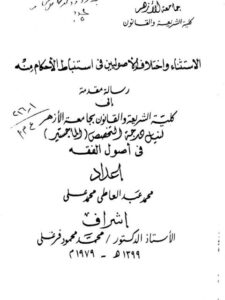 جامعة الأزهر
كلية الشريعة والقانون
الاستثناء واختلاف الأصوليين في استنباط الأحكام منه
رسالة مقدمة
إلى
كلية الشريعة والقانون بجامعة الأزهر
لنيل درجة التخصص (الماجستير)
في أصول الفقه
إعداد
محمد عبد العاطي محمد علي
إشراف
الأستاذ الدكتور / محمد محمود فرغلي
١٣٩٩ هـ - ١٩٧٩ م